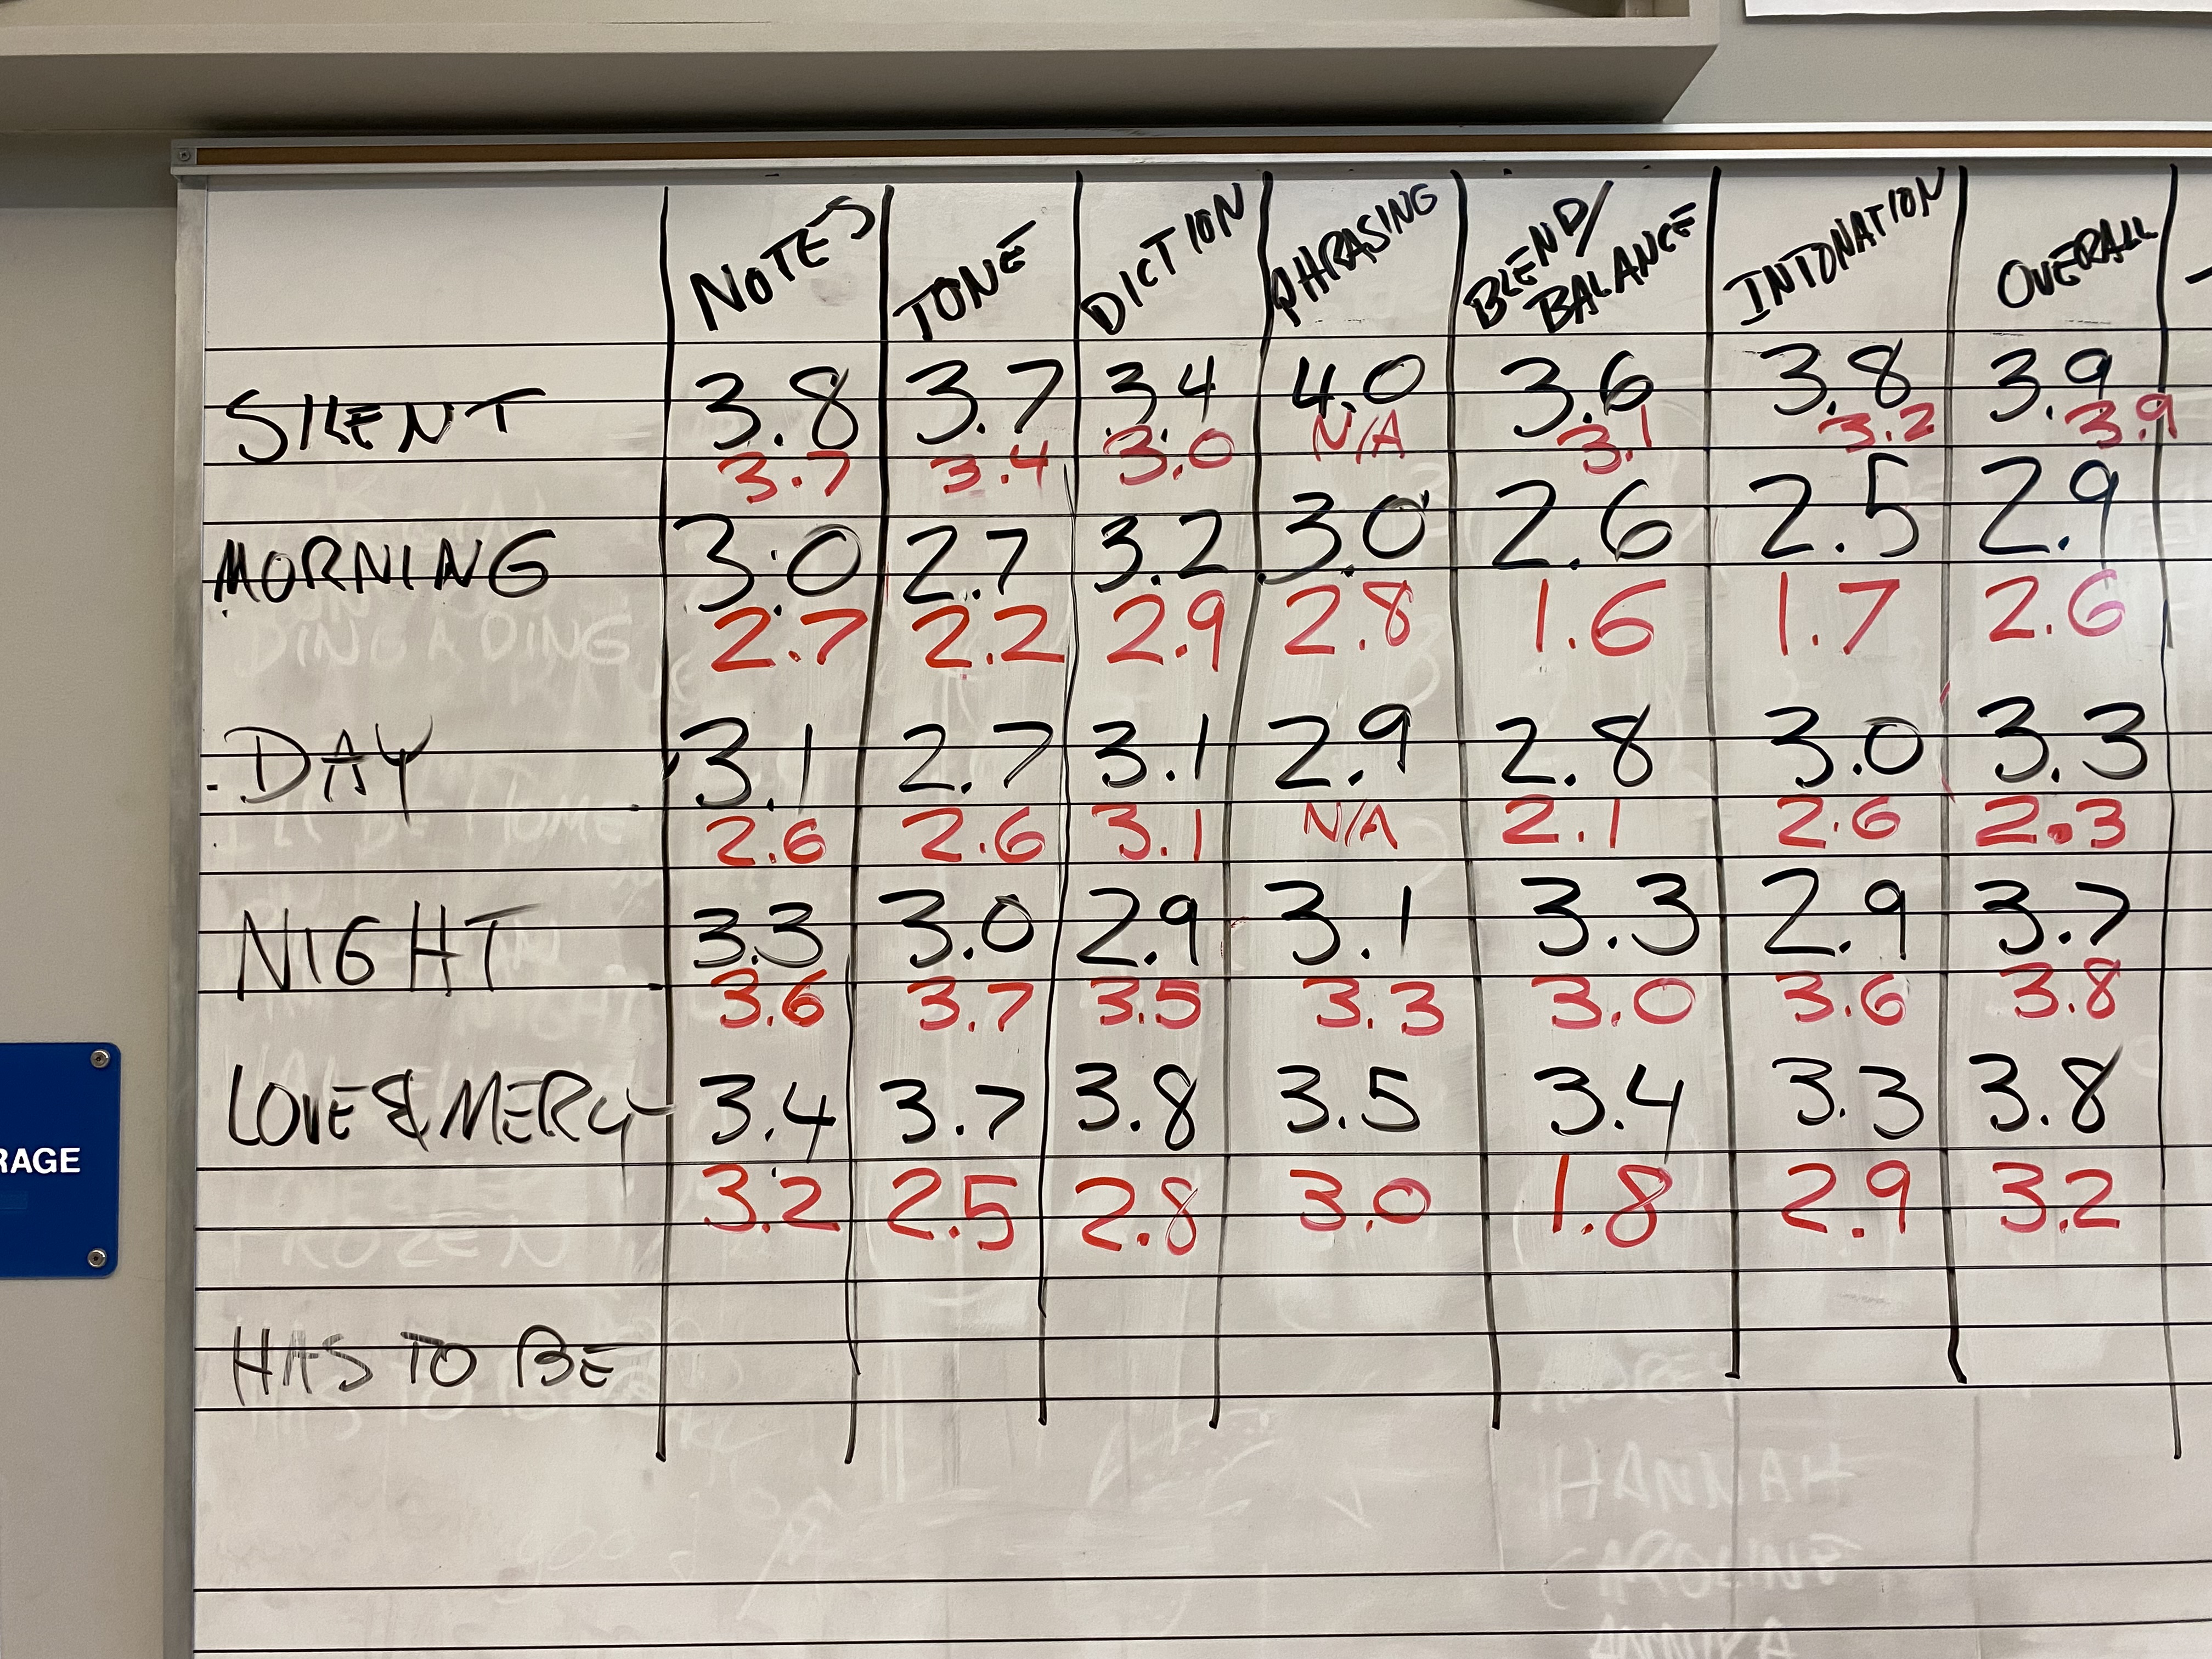 NOTES TONE DICTION PHRASING BLEND/ BALANCE INTONATION OVERALL
SILENT 3.8 3.7 3.4 4.0 3.6 3.8 3.9
3.7 3.4 3.0 N/A 3.1 3.2 3.9
MORNING 3.0 2.7 3.2 3.0 2.6 2.5 2.9
2.7 2.2 2.9 2.8 1.6 1.7 2.6
DING A DING
DAY 3.1 2.7 3.1 2.9 2.8 3.0 3.3
2.6 2.6 3.1 N/A 2.1 2.6 2.3
I'LL BE HOME
NIGHT 3.3 3.0 2.9 3.1 3.3 2.9 3.7
3.6 3.7 3.5 3.3 3.0 3.6 3.8
LOVE & MERCY 3.4 3.7 3.8 3.5 3.4 3.3 3.8
RAGE
3.2 2.5 2.8 3.0 1.8 2.9 3.2
FROZEN
HAS TO BE
HANNAH
CAROLINE